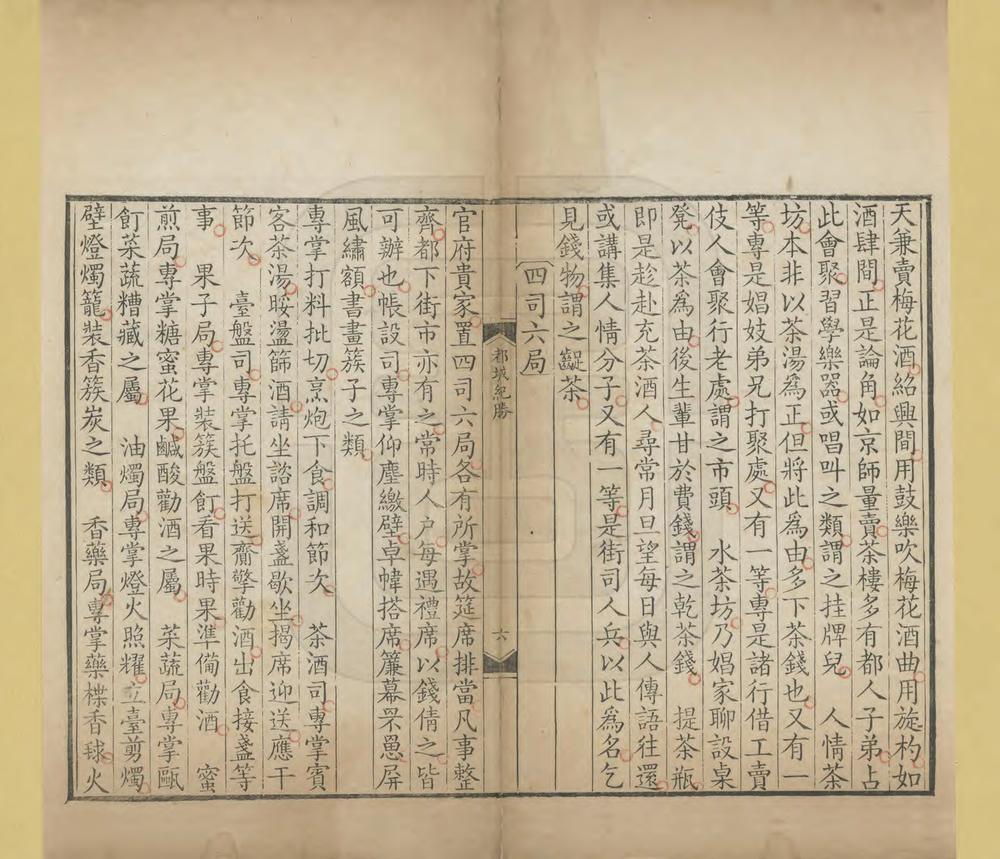 天兼賣梅花酒紹興間用鼓樂吹梅花酒曲用旋杓如
酒肆間正是論角如京師量賣茶樓多有都人子弟占
此會聚習學樂器或唱叫之類謂之挂牌兒　人情茶
坊本非以茶湯爲正但將此爲由多下茶錢也又有一
等專是娼妓弟兄打聚處又有一等專是諸行借工賣
伎人會聚行老處謂之市頭　水茶坊乃娼家聊設桌
凳以茶爲由後生輩甘於費錢謂之乾茶錢　提茶瓶
即是趁赴充茶酒人尋常月旦望每日與人傳語往還
或講集人情分子又有一等是街司人兵以此爲名乞
見錢物謂之齪茶
四司六局
都城紀勝
六
官府貴家置四司六局各有所掌故筵席排當凡事整
齊都下街市亦有之常時人戶每遇禮席以錢倩之皆
可辦也帳設司專掌仰塵繳壁卓幃搭席簾幕罘罳屏
風繡額書畫簇子之類
專掌打料批切烹炮下食調和節次　茶酒司專掌賓
客茶湯暖盪篩酒請坐諮席開盞歇坐揭席迎送應干
節次　臺盤司專掌托盤打送齎擎勸酒出食接盞等
事　果子局專掌裝簇盤飣看果時果準備勸酒　蜜
煎局專掌糖蜜花果鹹酸勸酒之屬　菜蔬局專掌甌
飣菜蔬糟藏之屬　油燭局專掌燈火照耀立臺剪燭
壁燈燭籠裝香簇炭之類　香藥局專掌藥楪香毬火